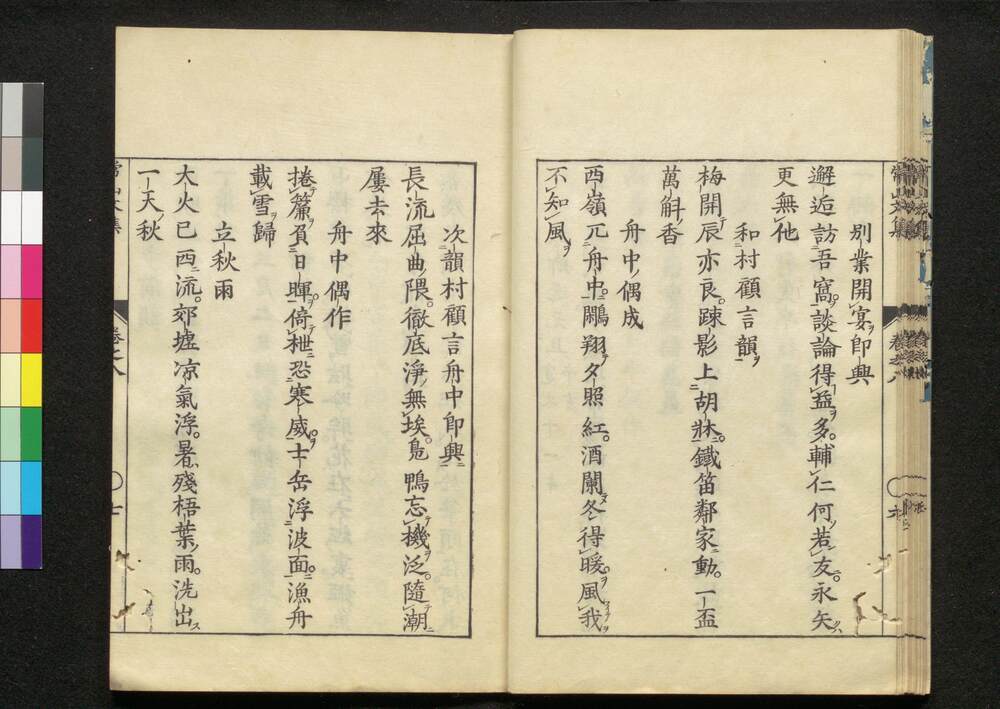 別業開宴即興
邂逅訪吾窩談論得益多輔仁何若友永矢
更無他
和村顧言韻
梅開辰亦良疎影上胡牀鐵笛鄰家動一盃
萬斛香
舟中偶成
西嶺兀舟中鵬翔夕照紅酒闌冬得暖風我
不知風
次韻村顧言舟中即興
長流屈曲隈徹底淨無埃鳧鴨忘機泛隨潮
屢去來
舟中偶作
捲簾負日暉倚枻恐寒威士岳浮波面漁舟
載雪歸
立秋雨
大火已西流郊墟凉氣浮暑殘梧葉雨洗出
一天秋
常山文集
卷之八